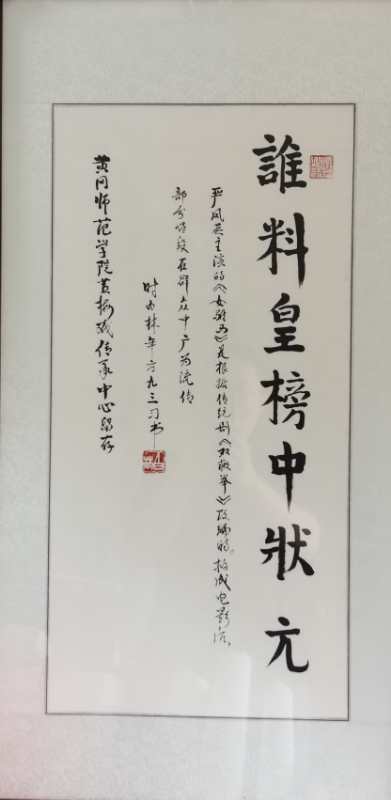 誰料皇榜中狀元
严凤英主演的《女驸马》是根据传统剧《双救举》改编的。拍成电影后,
部分唱段在群众中广为流传
时年九三习书
黄冈师范学院黄梅戏传承中心留存